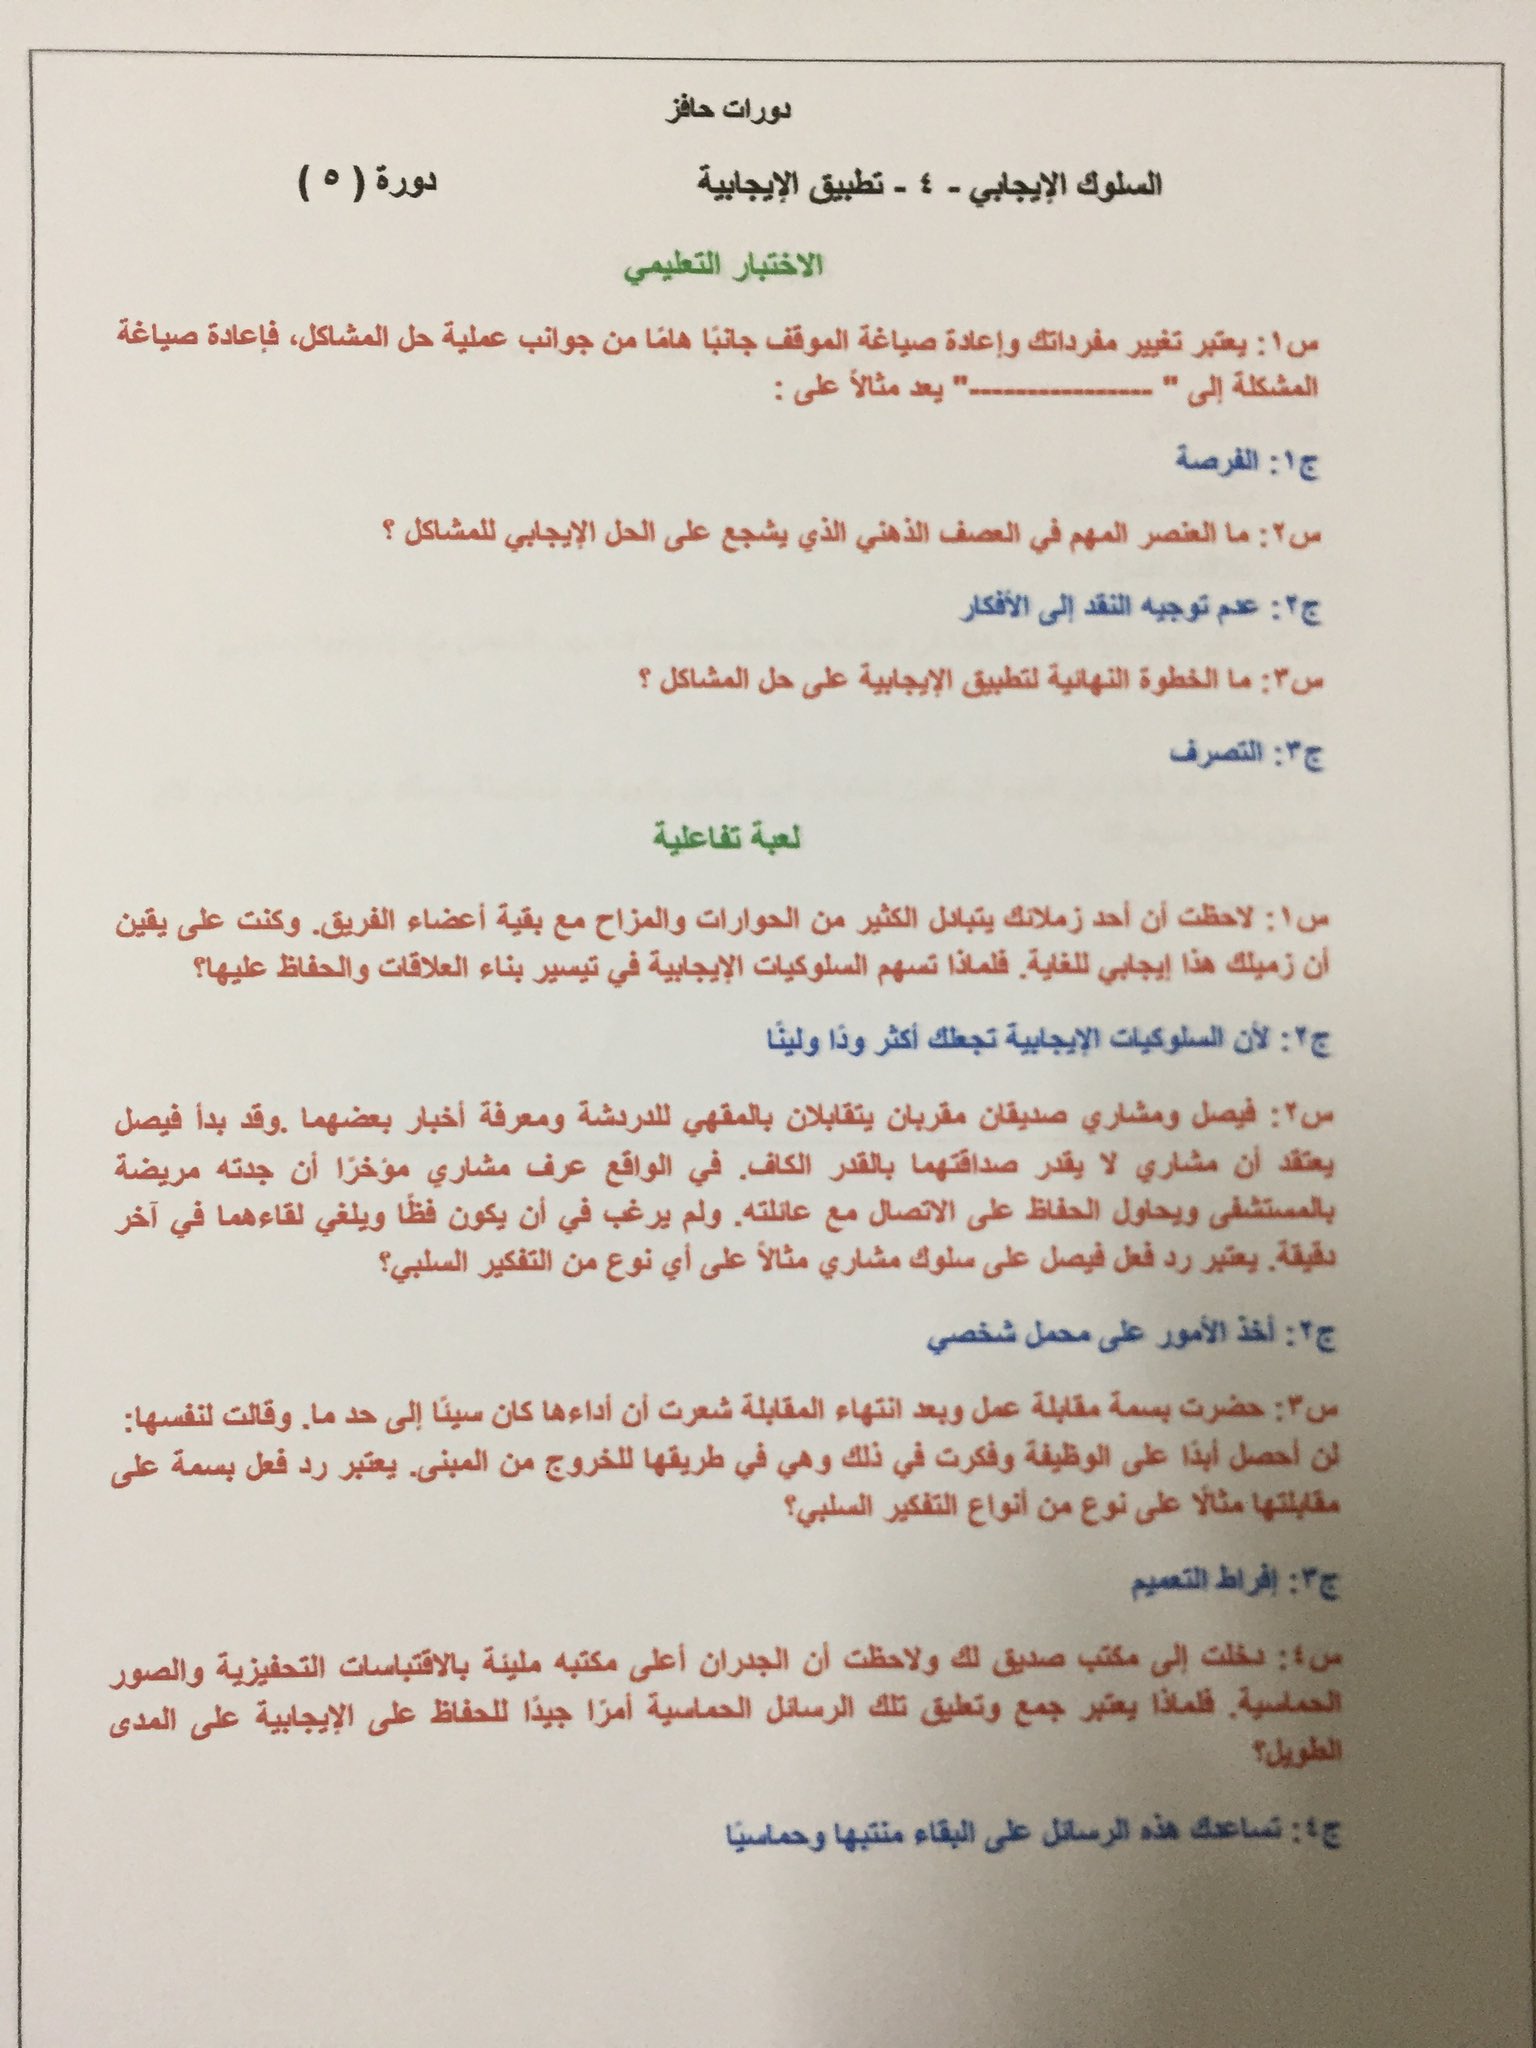 دورات حافز
السلوك الإيجابي - ٤ - تطبيق الإيجابية دورة ( ٥ )
الاختبار التعليمي
س١: يعتبر تغيير مفرداتك وإعادة صياغة الموقف جانبًا هامًا من جوانب عملية حل المشاكل، فإعادة صياغة
المشكلة إلى " ----------------" يعد مثالاً على :
ج١: الفرصة
س٢: ما العنصر المهم في العصف الذهني الذي يشجع على الحل الإيجابي للمشاكل ؟
ج٢: عدم توجيه النقد إلى الأفكار
س٣: ما الخطوة النهائية لتطبيق الإيجابية على حل المشاكل ؟
ج٣: التصرف
لعبة تفاعلية
س١: لاحظت أن أحد زملائك يتبادل الكثير من الحوارات والمزاح مع بقية أعضاء الفريق. وكنت على يقين
أن زميلك هذا إيجابي للغاية. فلماذا تسهم السلوكيات الإيجابية في تيسير بناء العلاقات والحفاظ عليها؟
ج٢: لأن السلوكيات الإيجابية تجعلك أكثر ودًا ولينًا
س٢: فيصل ومشاري صديقان مقربان يتقابلان بالمقهي للدردشة ومعرفة أخبار بعضهما .وقد بدأ فيصل
يعتقد أن مشاري لا يقدر صداقتهما بالقدر الكاف. في الواقع عرف مشاري مؤخرًا أن جدته مريضة
بالمستشفى ويحاول الحفاظ على الاتصال مع عائلته. ولم يرغب في أن يكون فظًا ويلغي لقاءهما في آخر
دقيقة. يعتبر رد فعل فيصل على سلوك مشاري مثالاً على أي نوع من التفكير السلبي؟
ج٢: أخذ الأمور على محمل شخصي
س٣: حضرت بسمة مقابلة عمل وبعد انتهاء المقابلة شعرت أن أداءها كان سيئًا إلى حد ما. وقالت لنفسها:
لن أحصل أبدًا على الوظيفة وفكرت في ذلك وهي في طريقها للخروج من المبنى. يعتبر رد فعل بسمة على
مقابلتها مثالًا على نوع من أنواع التفكير السلبي؟
ج٣: إفراط التعميم
س٤: دخلت إلى مكتب صديق لك ولاحظت أن الجدران أعلى مكتبه مليئة بالاقتباسات التحفيزية والصور
الحماسية. فلماذا يعتبر جمع وتعليق تلك الرسائل الحماسية أمرًا جيدًا للحفاظ على الإيجابية على المدى
الطويل؟
ج٤: تساعدك هذه الرسائل على البقاء منتبها وحماسيًا